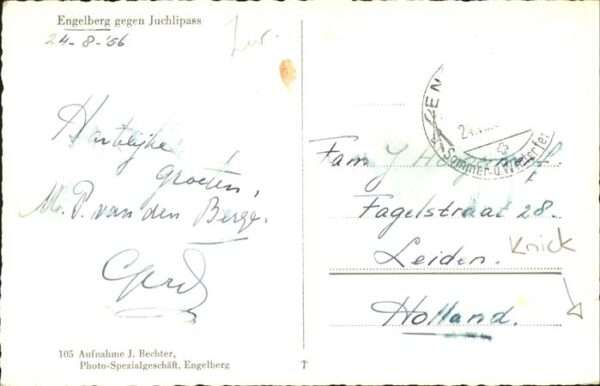 Engelberg gegen Juchlipass
24-8-'56
Hartelijke
groeten,
M. P. van den Berge.
Gerd
105 Aufnahme J. Bechter,
Photo-Spezialgeschäft, Engelberg
EN
Sommer- u. Winter
Fam J
Fagelstraat 28.
Leiden.
Knick
Holland.